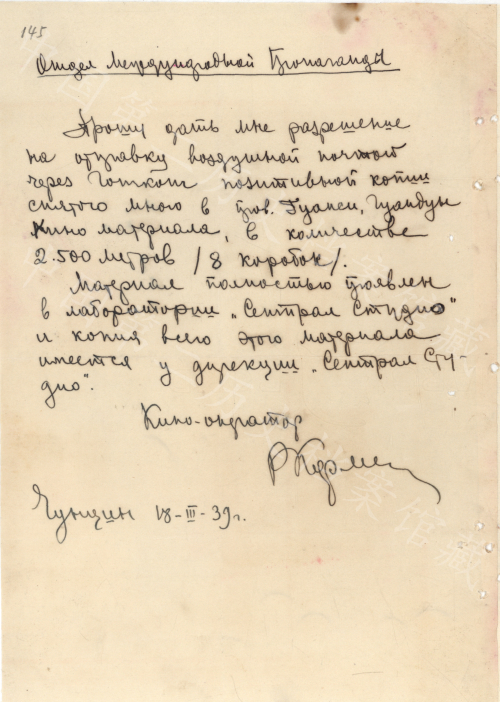 145
Отдел Международной Пропаганды
Прошу дать мне разрешение
на отправку воздушной почтой
через Гонконг позитивной копии
снятого мною в пров. Гуанси, Гуандун
кино материала, в количестве
2.500 метров /8 коробок/.
Материал полностью проявлен
в лаборатории „Сентрал Студио"
и копия всего этого материала
имеется у дирекции „Сентрал Сту-
дио".
Кино-оператор
Р Кармен
Чунцин 18-III-39г.